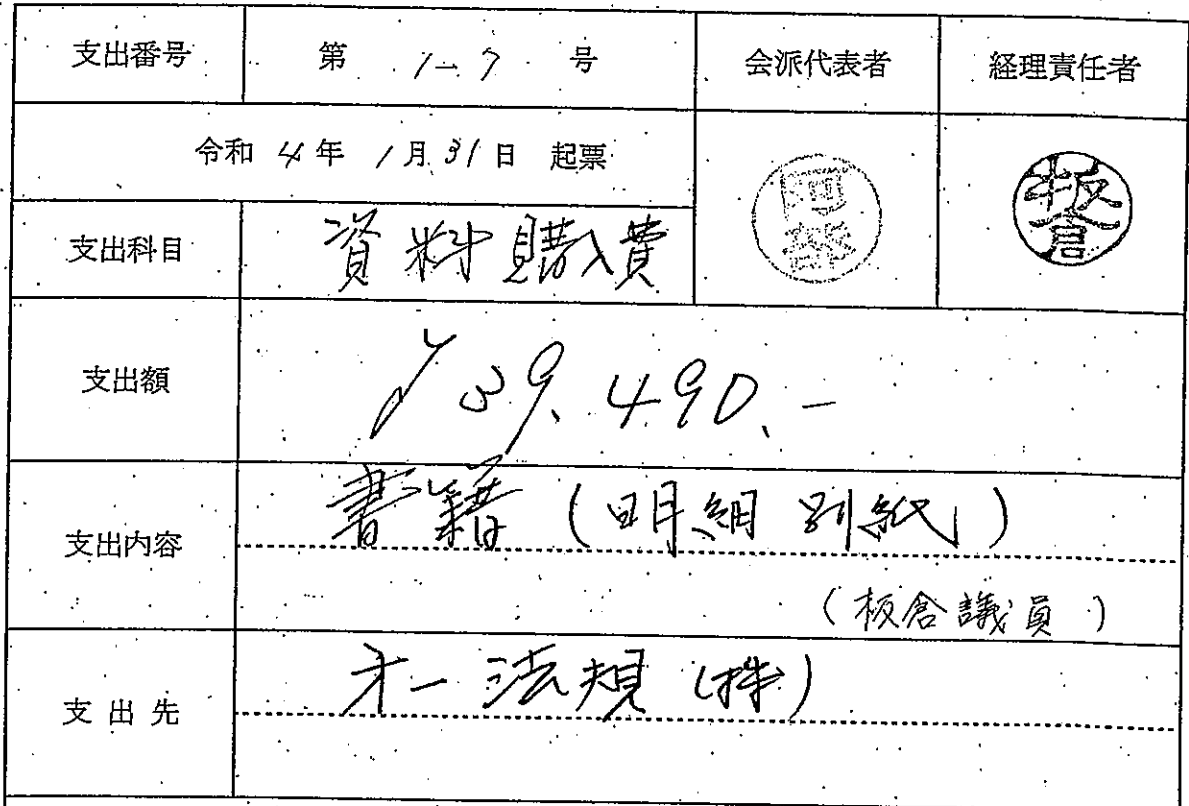 支出番号 第 1-7 号 会派代表者 経理責任者
令和 4年 1月31日 起票
阿部
板倉
支出科目 資料購入費
支出額 ¥39,490.-
支出内容 書籍(明細別紙)
(板倉議員)
支出先 才一法規(株)